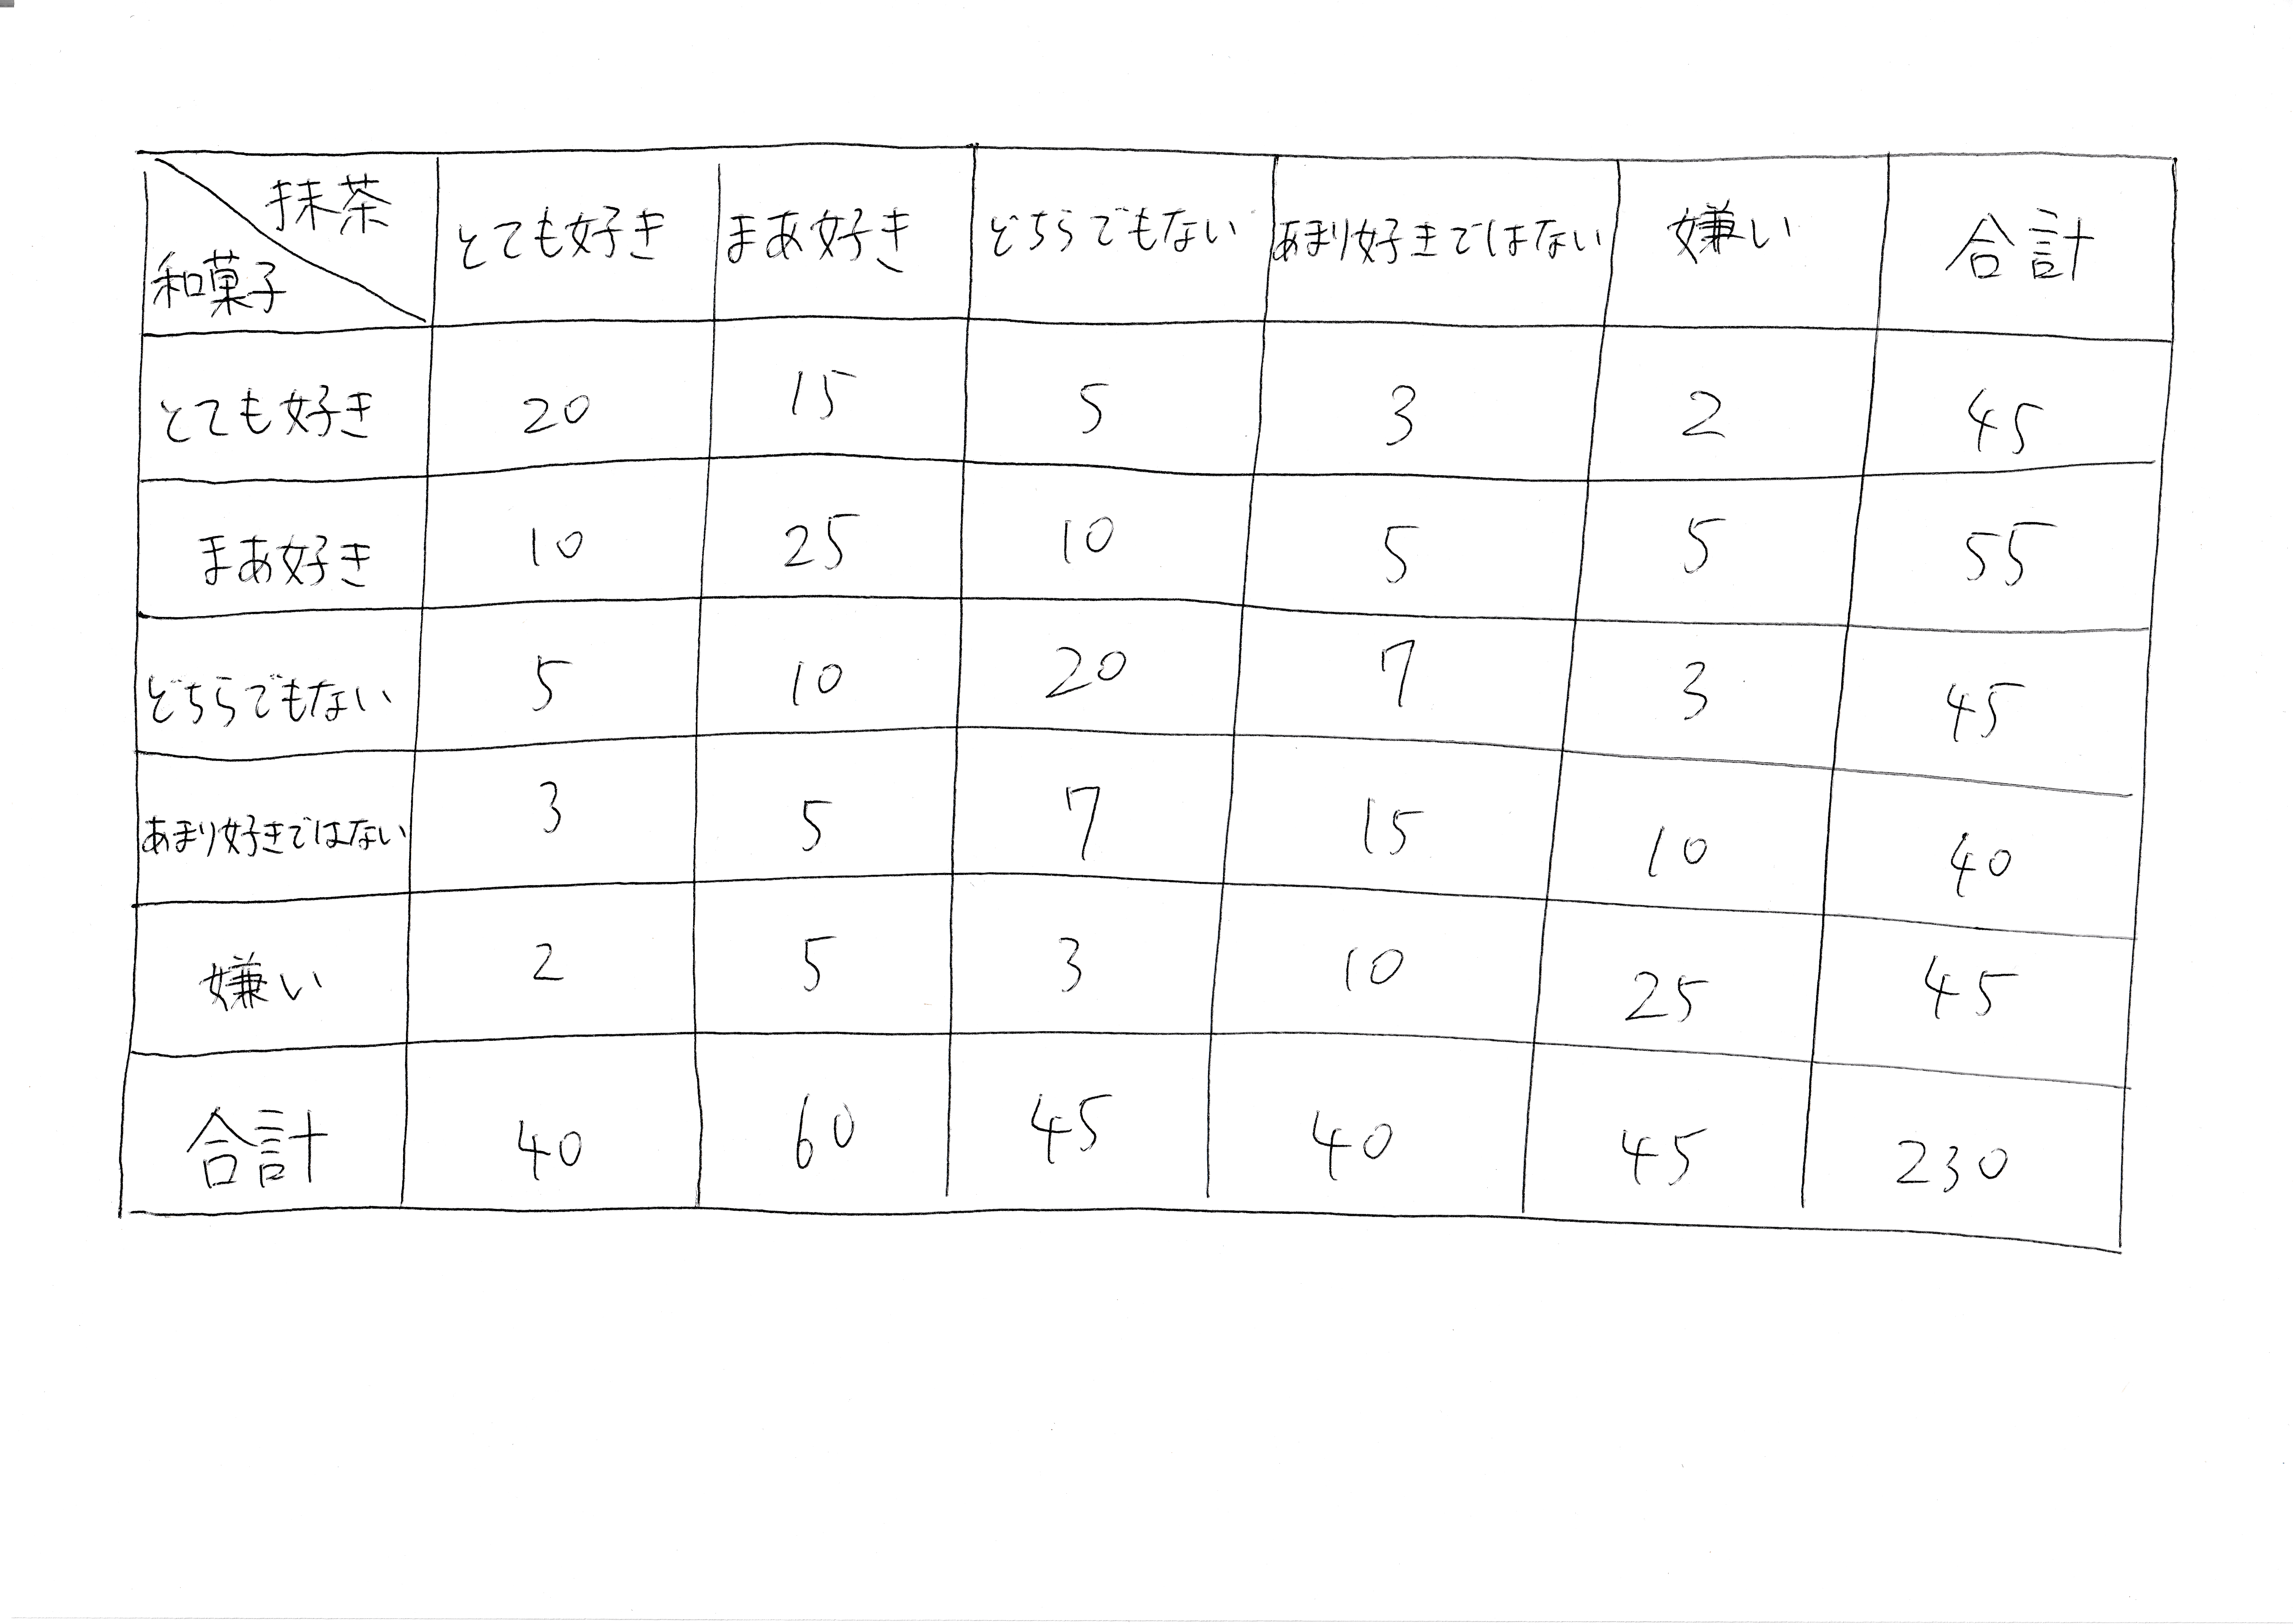 抹茶
和菓子
とても好き まあ好き どちらでもない あまり好きではない 嫌い 合計
とても好き 20 15 5 3 2 45
まあ好き 10 25 10 5 5 55
どちらでもない 5 10 20 7 3 45
あまり好きではない 3 5 7 15 10 40
嫌い 2 5 3 10 25 45
合計 40 60 45 40 45 230